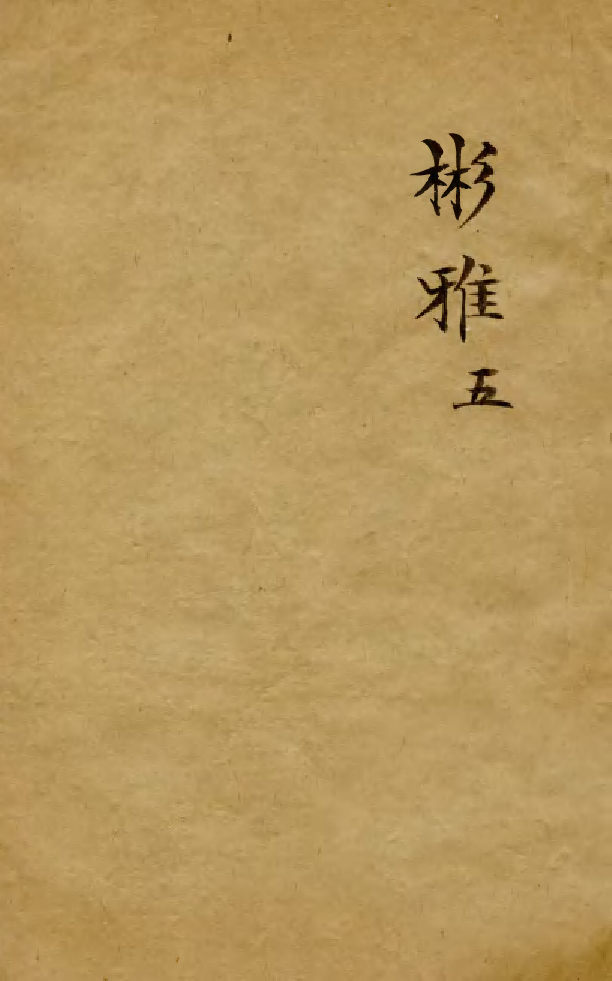 彬雅五